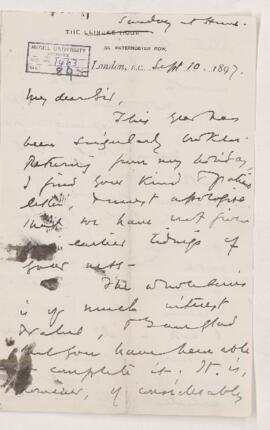 Sunday at Home.
THE LEISURE HOUR,
56, PATERNOSTER ROW,
McGILL UNIVERSITY
London, E.C. Sept 10 1897
My dear Sir,
This year has
been singularly broken.
Returning from my holiday
I find your kind & patient
letter, I must apologise
that we have not given
earlier tidings of
your
The whole
is of much interest
& value, & I am glad
that you have been able
to complete it. It is,
however, of considerably